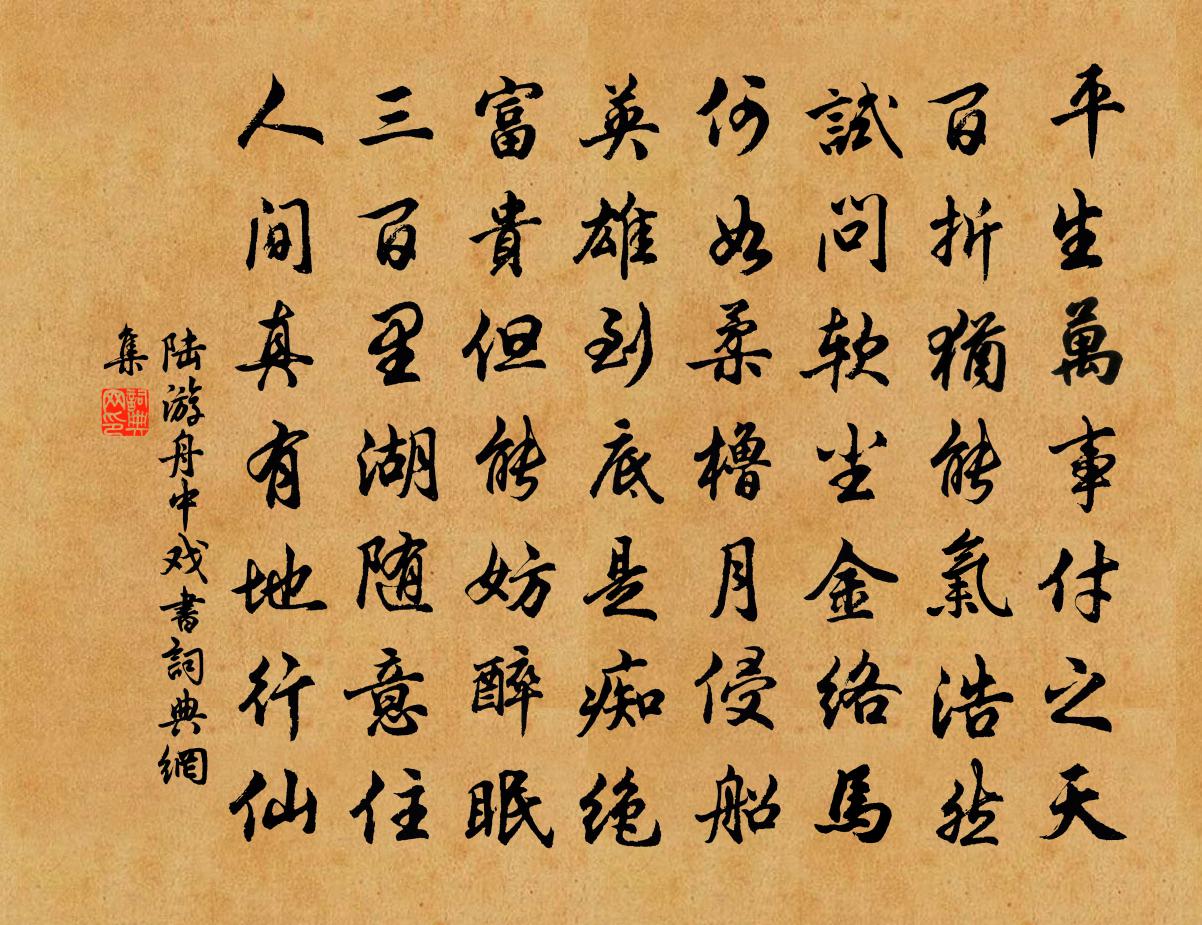 平生萬事付之天
百折猶能氣浩然
試問軟塵金絡馬
何如柔櫓月侵船
英雄到底是痴絕
富貴但能妨醉眠
三百里湖随意住
人間真有地行仙
陆游舟中戏書詞典網
集
詞典网印